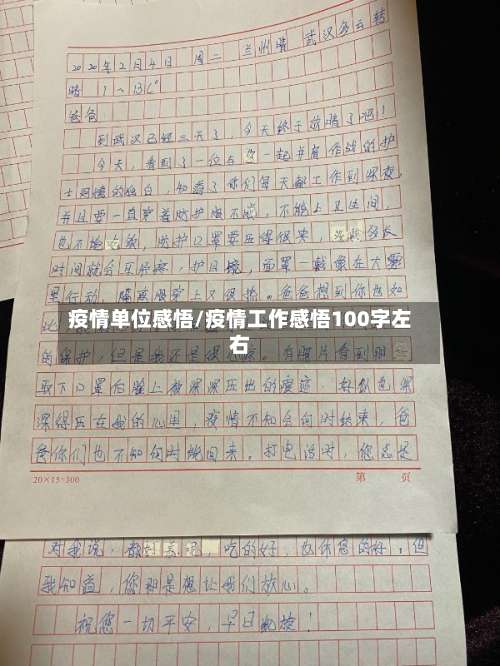 2020年2月4日 周二 兰州晴 武汉多云转
晴 1～13℃
爸爸:
到武汉已经三天了，今天终于放晴了吧！
今天，看到了一位与您一起并肩作战的护
士阿姨的独白，知道了你们每天都工作到深夜，
并且要一直穿着防护服不喝，不能上卫生间，
也不能，防护口罩要压得很紧，
时间就会耳后疼，护目镜，面罩一戴像在大雾
里行动，隔离服穿上又很热。爸爸想到你也如
疫情单位感悟/疫情工作感悟100字左
右
的保护，但是我不是很。有照片看到
取下口罩后脸上被深深压出的痕迹，好似也深
深得压在我的心里，疫情不知会何时结束，爸
爸你们也不知何时能回来。打电话时，您总是
20×15=300
第 页
对我说，都好着呢，吃的好，也休息的好，但
我知道，您那是想让我们放心。
祝您一切平安，早日凯旋！